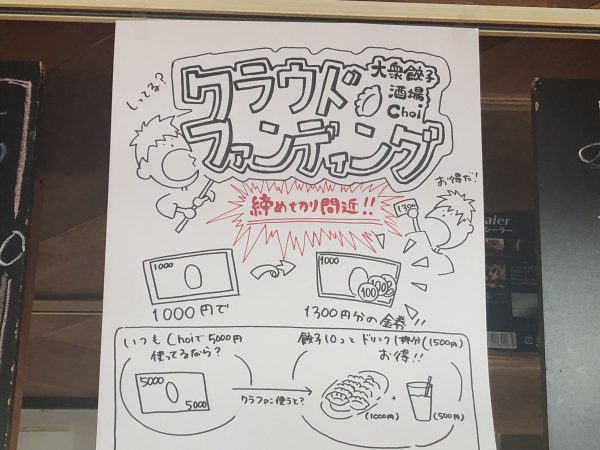 しってる?
クラウド
ファンディング
大衆餃子
酒場
Choi
締めきり間近!!
お得だ!
1300
1000
1000円で
1000
100
100
1300円分の金券!!
いつもChoiで5000円
使ってるなら?
5000
5000
クラファン使うと?
餃子10っと ドリンク1杯分(1500円)
お得!!
(1000円)
+
(500円)
aler
シーラー